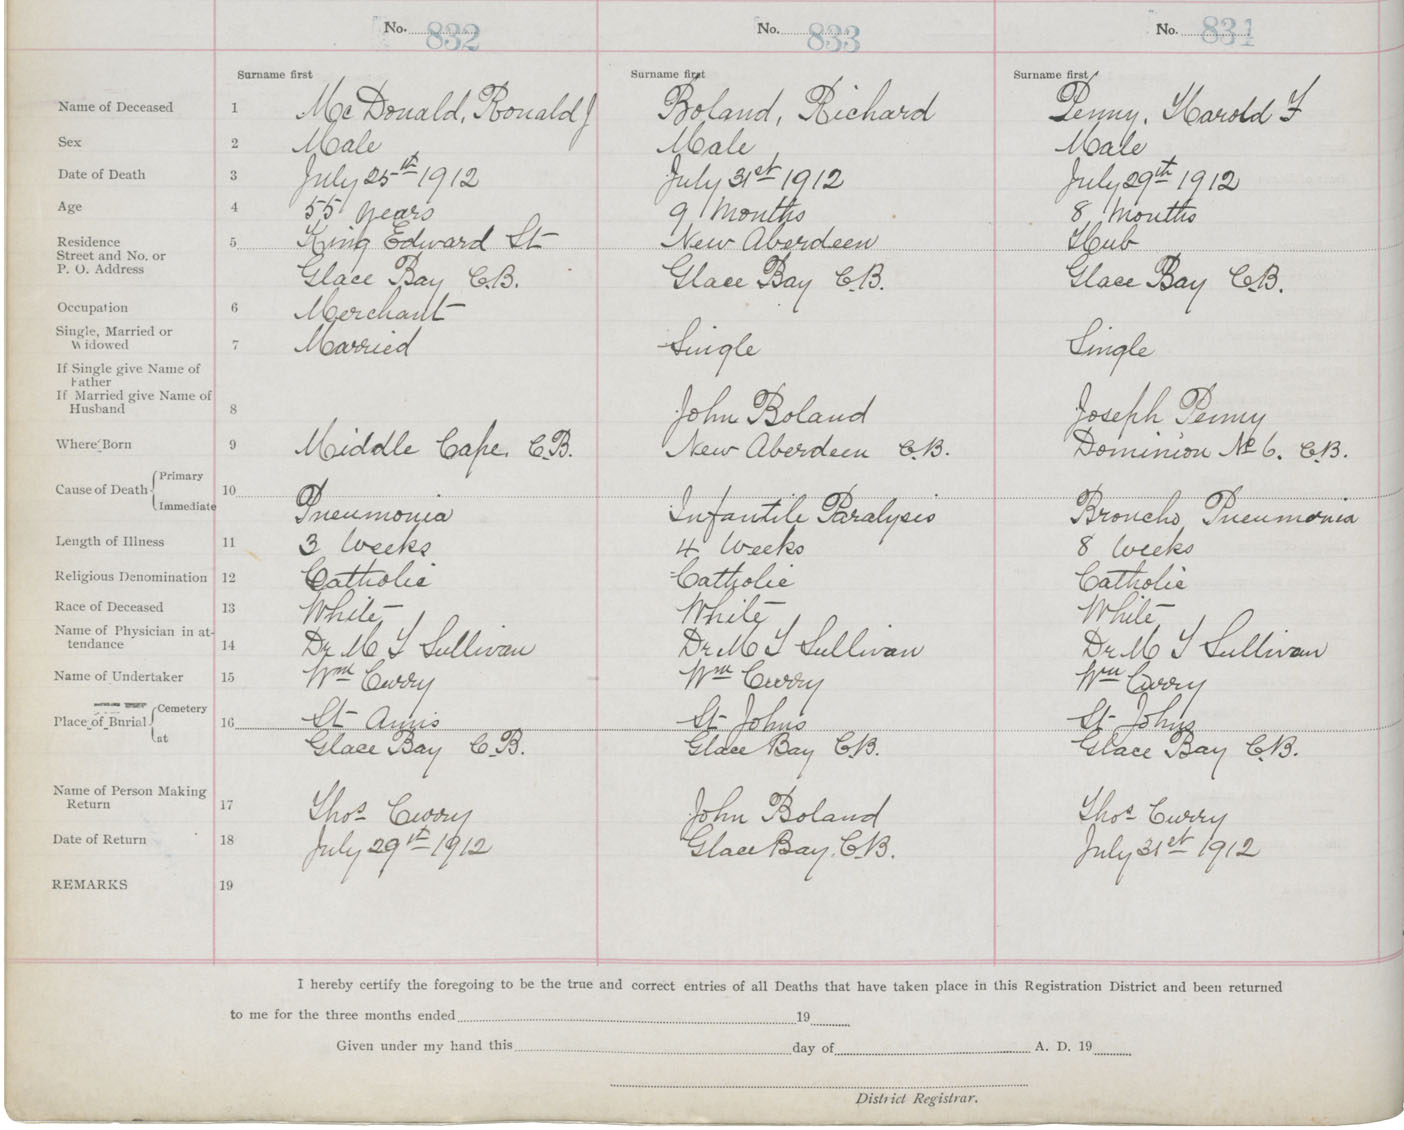 No. 832 No. 833 No. 834
Surname first Surname first Surname first
Name of Deceased 1 McDonald, Ronald J Boland, Richard Penny, Harold F
Sex 2 Male Male Male
Date of Death 3 July 25th 1912 July 31st 1912 July 29th 1912
Age 4 55 years 9 Months 8 Months
Residence 5 King Edward St New Aberdeen Hub
Street and No. or
P. O. Address Glace Bay C.B. Glace Bay C.B. Glace Bay C.B.
Occupation 6 Merchant
Single, Married or
Widowed 7 Married Single Single
If Single give Name of
Father
If Married give Name of
Husband 8 John Boland Joseph Penny
Where Born 9 Middle Cape, C.B. New Aberdeen C.B. Dominion No 6. C.B.
Cause of Death { Primary
10
Immediate Pneumonia Infantile Paralysis Broncho Pneumonia
Length of Illness 11 3 Weeks 4 Weeks 8 Weeks
Religious Denomination 12 Catholic Catholic Catholic
Race of Deceased 13 White White White
Name of Physician in at-
tendance 14 Dr M T Sullivan Dr M T Sullivan Dr M T Sullivan
Name of Undertaker 15 Wm Curry Wm Curry Wm Curry
Place of Burial { Cemetery 16 St Anns St Johns St Johns
at Glace Bay C.B. Glace Bay C.B. Glace Bay C.B.
Name of Person Making
Return 17 Thos Curry John Boland Thos Curry
Date of Return 18 July 29th 1912 Glace Bay, C.B. July 31st 1912
REMARKS 19
I hereby certify the foregoing to be the true and correct entries of all Deaths that have taken place in this Registration District and been returned
to me for the three months ended 19
Given under my hand this day of A. D. 19
District Registrar.